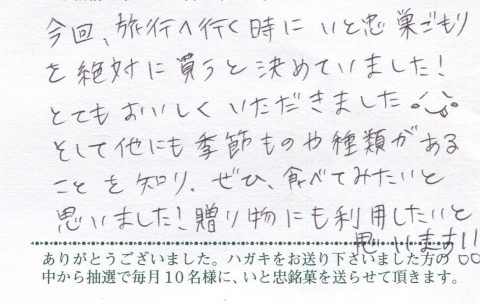 今回、旅行へ行く時にいと忠巣ごもり
を絶対に買うと決めていました!
とてもおいしくいただきました
そして他にも季節ものや種類がある
ことを知り、ぜひ、食べてみたいと
思いました!贈り物にも利用したいと
思います!!
ありがとうございました。ハガキをお送り下さいました方の
中から抽選で毎月10名様に、いと忠銘菓を送らせて頂きます。